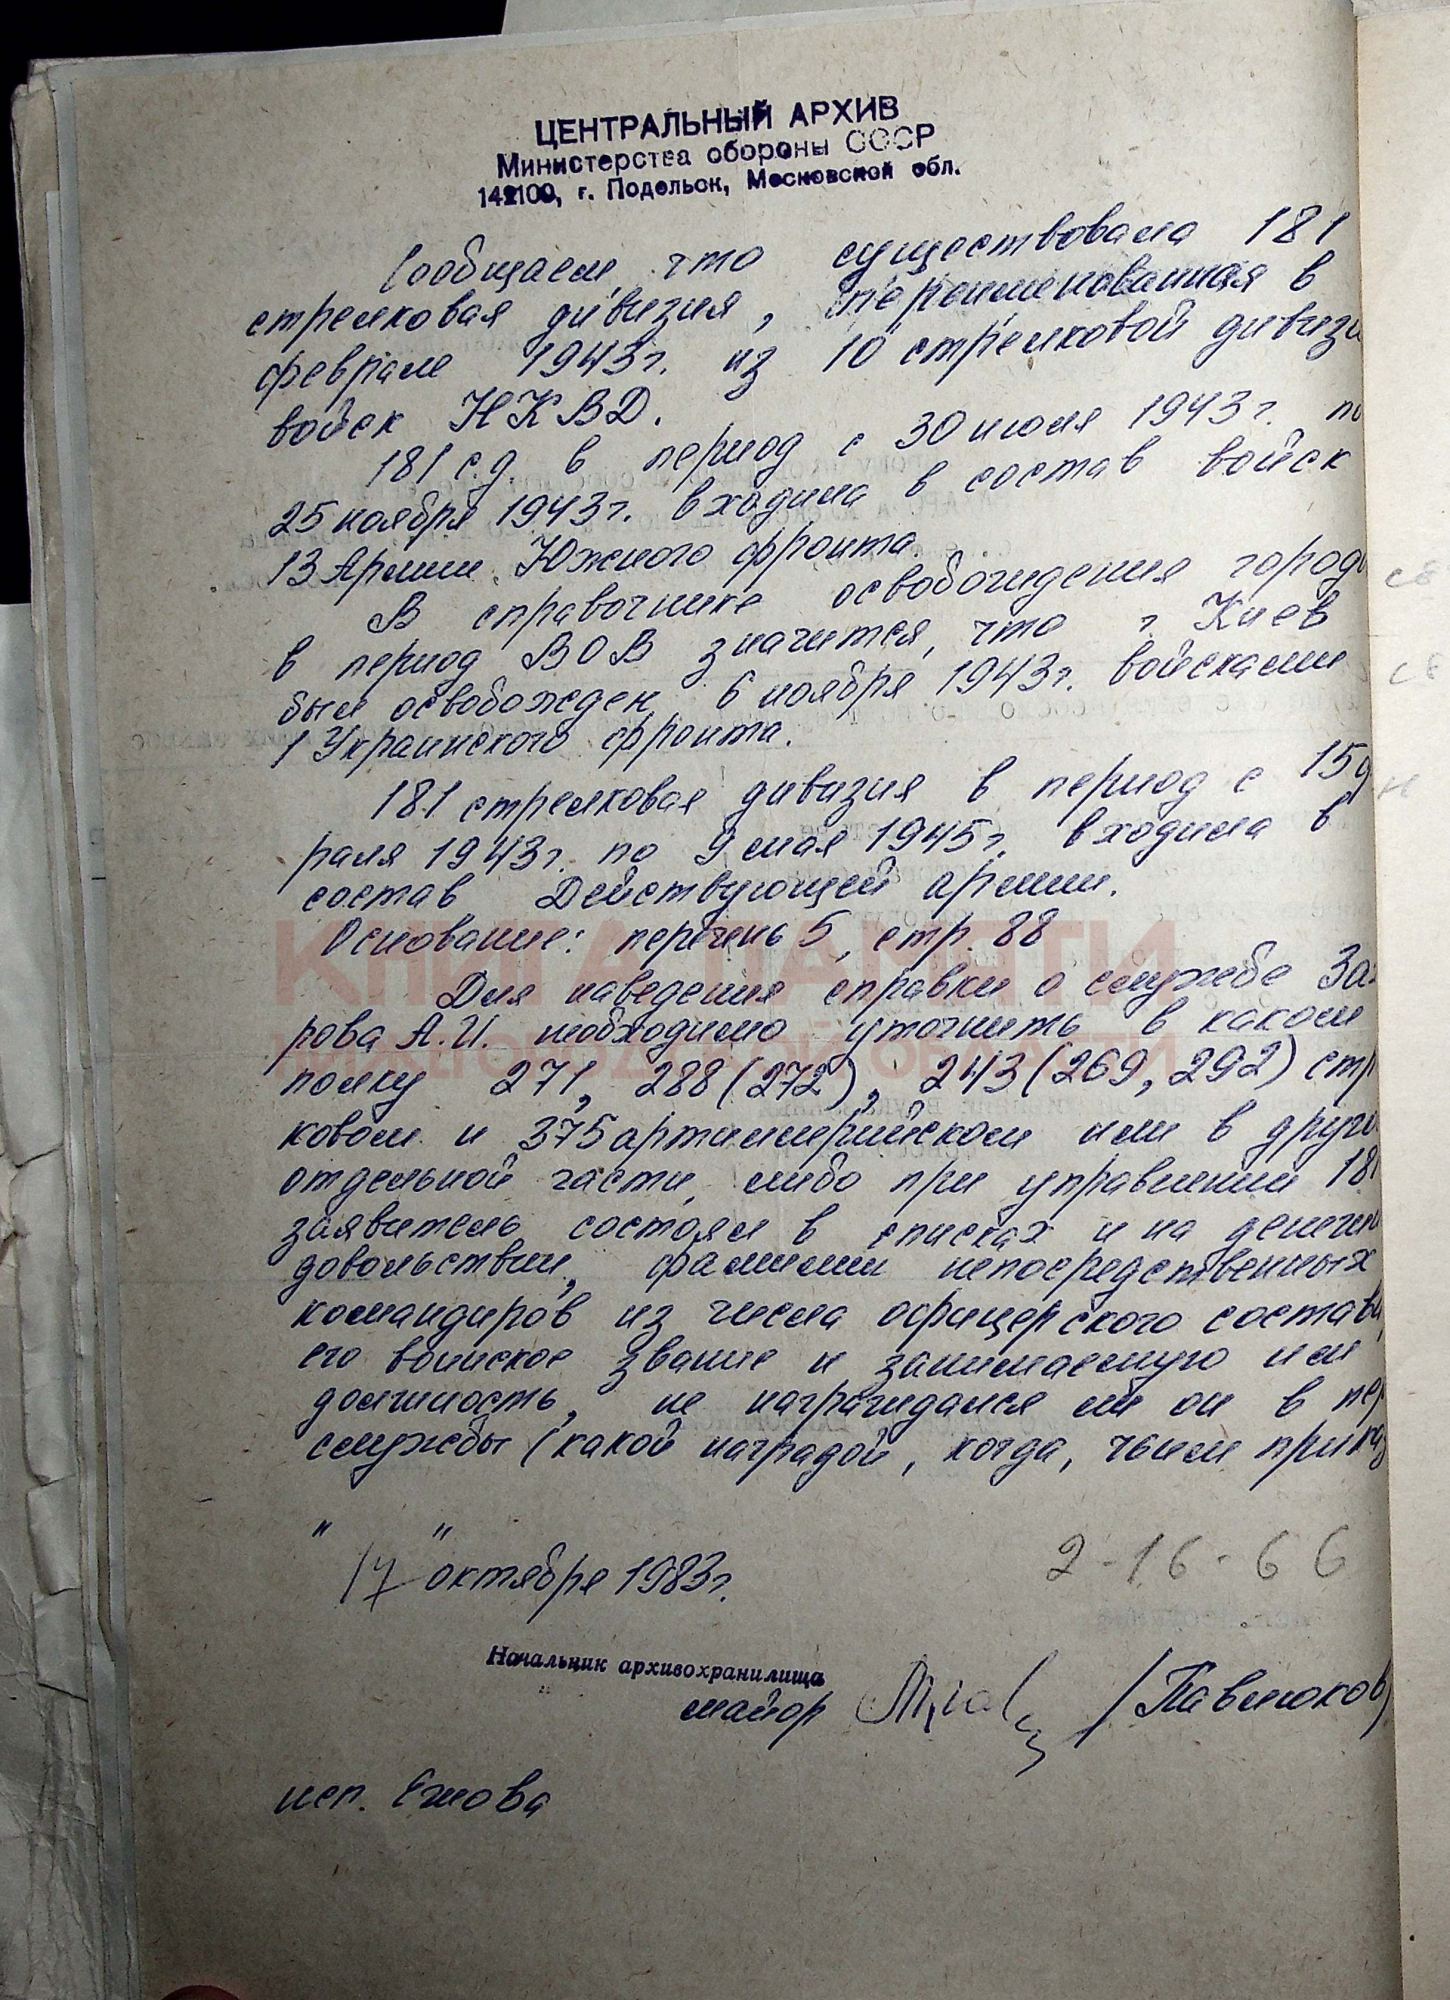 ЦЕНТРАЛЬНЫЙ АРХИВ
Министерства обороны СССР
142100, г. Подольск, Московской обл.
Сообщаем, что существовала 181
стрелковая дивизия, переименованная в
феврале 1943г. из 10 стрелковой дивизи
войск НКВД.
181 с.д. в период с 30 июля 1943г. по
25 ноября 1943г. входила в состав войск
13 Армии, Южного фронта.
В справочнике освобождения городо
в период ВОВ значится, что г Киев
был освобожден 6 ноября 1943г. войсками
1 Украинского фронта.
181 стрелковая дивизия в период с 15 ф
раля 1943г. по 9 мая 1945г. входила в
состав Действующей армии.
Основание: перечень 5, стр. 88
КНИГА ПАМЯТИ
Для наведения справки о службе Заха
рова А.И. необходимо уточнить в каком
полку 271, 288 (272), 243 (269, 292) стр
ковом и 375 артиллерийском или в друго
отдельной части, либо при управлении 181
заявитель состоял в списках и на денежн
довольствии, фамилии непосредственных
командиров из числа офицерского состава,
его воинское звание и занимаемую им
должность, не награждался ли он в пер
службы (какой наградой, когда, чьим приказ
" "
17 октября 1983г.
2-16-66
Начальник архивохранилища
майор /Павлюков/
исп. Ежова